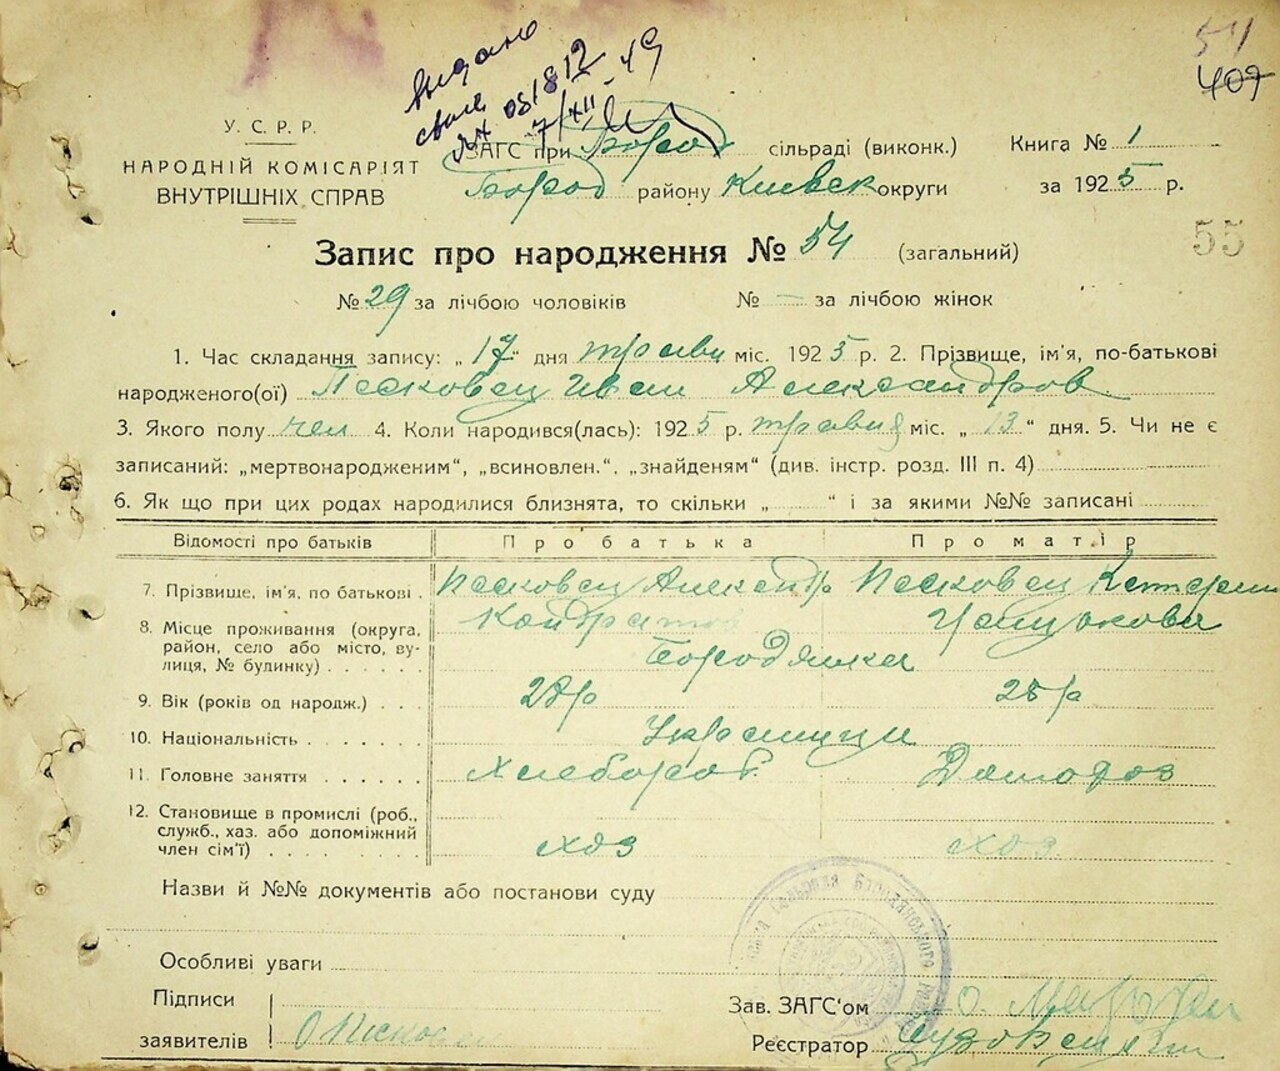 54
409
видано
свид
ЯХ 081812
7/XII-49
У. С. Р. Р.
НАРОДНІЙ КОМІСАРІЯТ
ВНУТРІШНІХ СПРАВ
ЗАГС при Бород сільраді (виконк.)
Книга № 1
Бород району Киевск округи
за 1925 р.
55
Запис про народження № 54 (загальний)
№ 29 за лічбою чоловіків № — за лічбою жінок
1. Час складання запису: „ 17 “ дня травн міс. 1925 р. 2. Прізвище, ім'я, по-батькові
народженого(ої) Песковец Иван Александров
3. Якого полу чол 4. Коли народився(лась): 1925 р. травня міс. „ 13 “ дня. 5. Чи не є
записаний: „мертвонародженим“, „всиновлен.“, „знайденям“ (див. інстр. розд. III п. 4)
6. Як що при цих родах народилися близнята, то скільки „ “ і за якими №№ записані
Відомості про батьків Про батька Про матір
7. Прізвище, ім'я, по батькові . Песковец Александр Песковец Катерин
Кондратов
8. Місце проживання (округа,
район, село або місто, ву-
лиця, № будинку) . . . . . Бородянка
9. Вік (років од народж.) . . . 28 р 25 р
10. Національність . . . . . . . Украинци
11. Головне заняття . . . . . . Хлебороб Домороз
12. Становище в промислі (роб.,
служб., хаз. або допоміжний
член сім'ї) . . . . . . . . хоз хоз
Назви й №№ документів або постанови суду
Особливі уваги
Підписи
заявителів
Зав. ЗАГС'ом
Реєстратор